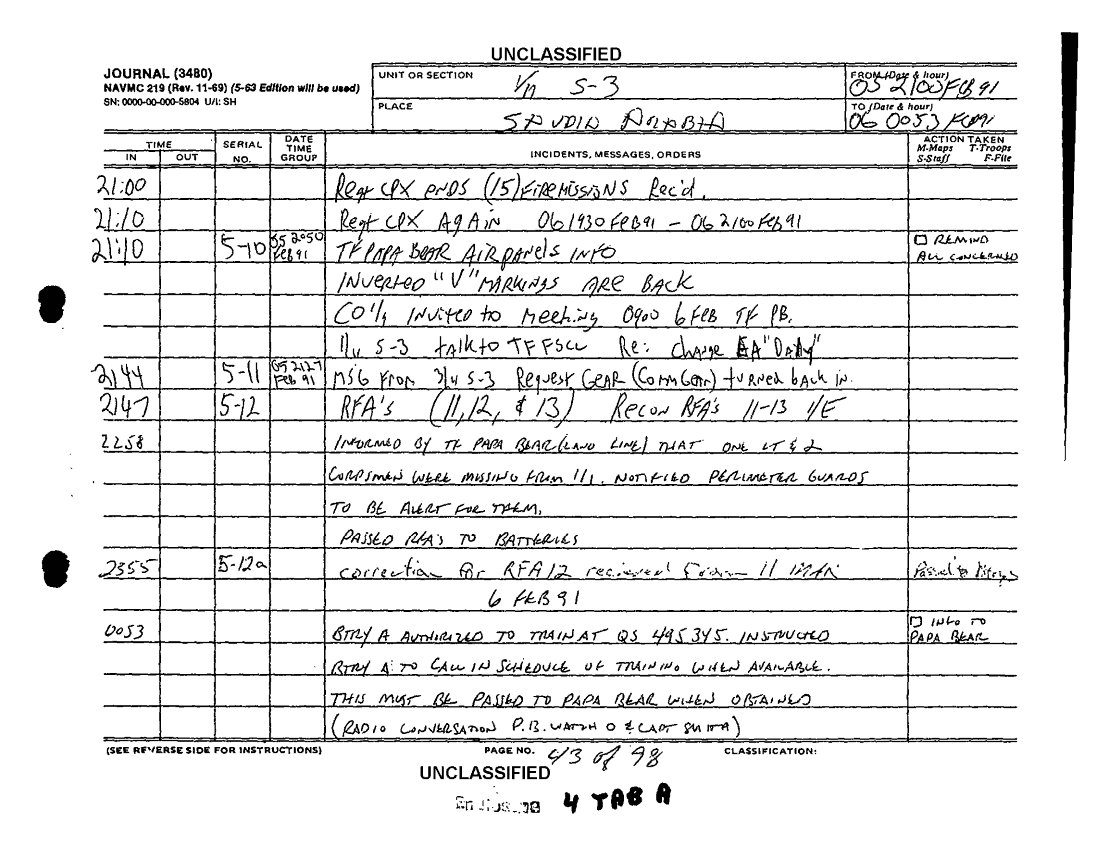 UNCLASSIFIED
JOURNAL (3480)
NAVMC 219 (Rev. 11-69) (5-63 Edition will be used)
SN: 0000-00-000-5804 U/I: SH
UNIT OR SECTION
1/11 S-3
FROM (Date & hour)
05 2100 FEB 91
PLACE
SAUDIA ARABIA
TO (Date & hour)
06 0053 FEB 91
TIME
IN OUT
SERIAL NO.
DATE TIME GROUP
INCIDENTS, MESSAGES, ORDERS
ACTION TAKEN
M-Maps T-Troops
S-Staff F-File
21:00 Regt CPX ENDS (15) FIREMISSIONS Rec'd.
21:10 Regt CPX AgAiN 061930 FEB 91 - 062100 Feb 91
21:10 5-10 05 2050 FEB 91 TF PAPA BEAR AIR panels INFO
□ REMIND
ALL CONCERNED
INVERTED "V" MARKINGS ARE BACK
CO 1/11 INVITED to MeetiNg 0900 6 FEB TF PB.
1/11 S-3 talk to TF FSCC Re: change AA "DAlly"
2144 5-11 05 2127 Feb 91 MSG From 3/11 S-3 Request GEAR (Comm Gear) turned back in.
2147 5-12 RFA's (11, 12, & 13) Recon RFA's 11-13 I/E
2258 INFORMED BY TF PAPA BEAR (LAND LINE) THAT ONE LT & 2
CORPSMEN WERE MISSING FROM 1/1. NOTIFIED PERIMETER GUARDS
TO BE ALERT FOR THEM.
PASSED RFA'S TO BATTERIES
2355 5-12a correction for RFA 12 recieved from 11 MAR
Passed to Btrys
6 FEB 91
0053 BTRY A AUTHORIZED TO TRAIN AT QS 495345. INSTRUCTED
□ INFO TO
PAPA BEAR
BTRY A TO CALL IN SCHEDULE OF TRAINING WHEN AVAILABLE.
THIS MUST BE PASSED TO PAPA BEAR WHEN OBTAINED
(RADIO CONVERSATION P.B. WATCH O & CAPT SMITH)
(SEE REVERSE SIDE FOR INSTRUCTIONS)
PAGE NO. 43 of 98
CLASSIFICATION:
UNCLASSIFIED
4 TAB A